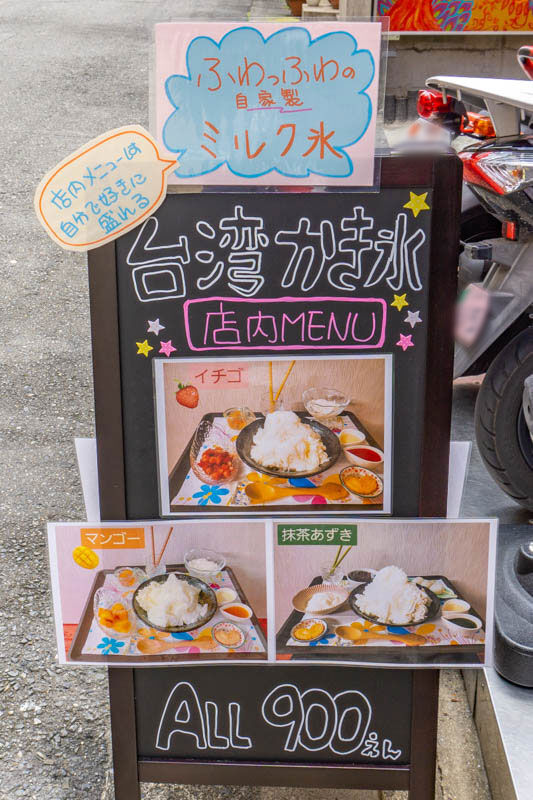 ふわっふわの
自家製
ミルク氷
店内メニューは
自分で好きに
盛れる
台湾かき氷
店内MENU
イチゴ
マンゴー
抹茶あずき
ALL 900えん